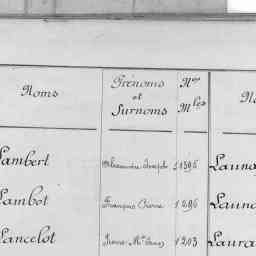 Noms Prénoms et Surnoms Nos Mles No
Lambert Alexandre Joseph 1395 Launa
Lambot François Pierre 1296 Laun
Lancelot Pierre Mie 1203 Laura